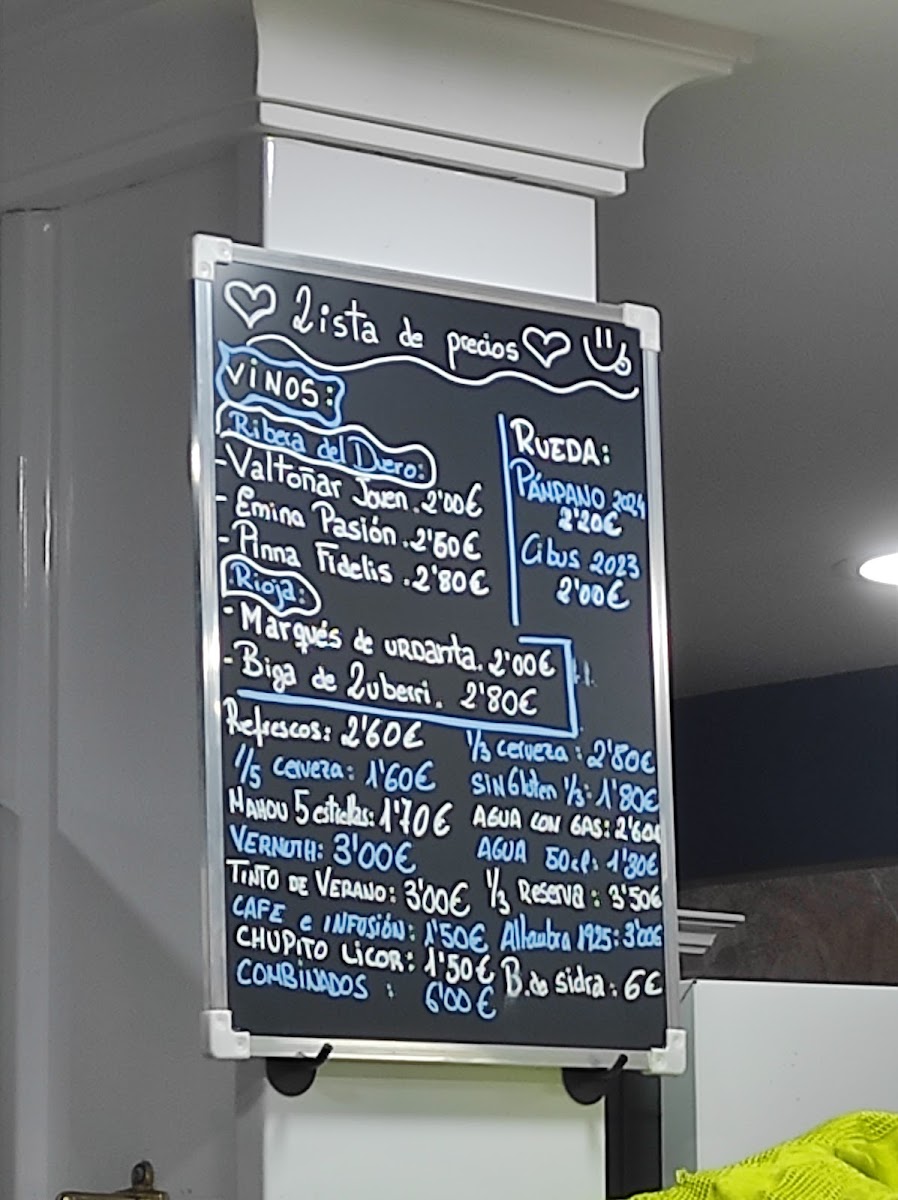 Lista de precios
VINOS:
Ribera del Duero:
-Valtoñar Joven. 2'00€
- Emina Pasión. 2'60€
-Pinna Fidelis. 2'80€
Rioja:
- Marqués de URDanta. 2'00€
- Biga de Luberri. 2'80€
RUEDA:
PÁNPANO 2024
2'20€
Cibus 2023
2'00€
Refrescos: 2'60€
1/5 cerveza: 1'60€
MAHOU 5 estrellas: 1'70€
VERMUTH: 3'00€
TINTO DE VERANO: 3'00€
CAFE e INFUSIÓN: 1'50€
CHUPITO LICOR: 1'50€
COMBINADOS : 6'00€
1/3 cerveza: 2'80€
SIN Gluten 1/3: 1'80€
AGUA CON GAS: 2'60€
AGUA 50cl: 1'30€
1/3 Reserva: 3'50€
Alhambra 1925: 3'00€
B. de sidra: 6€